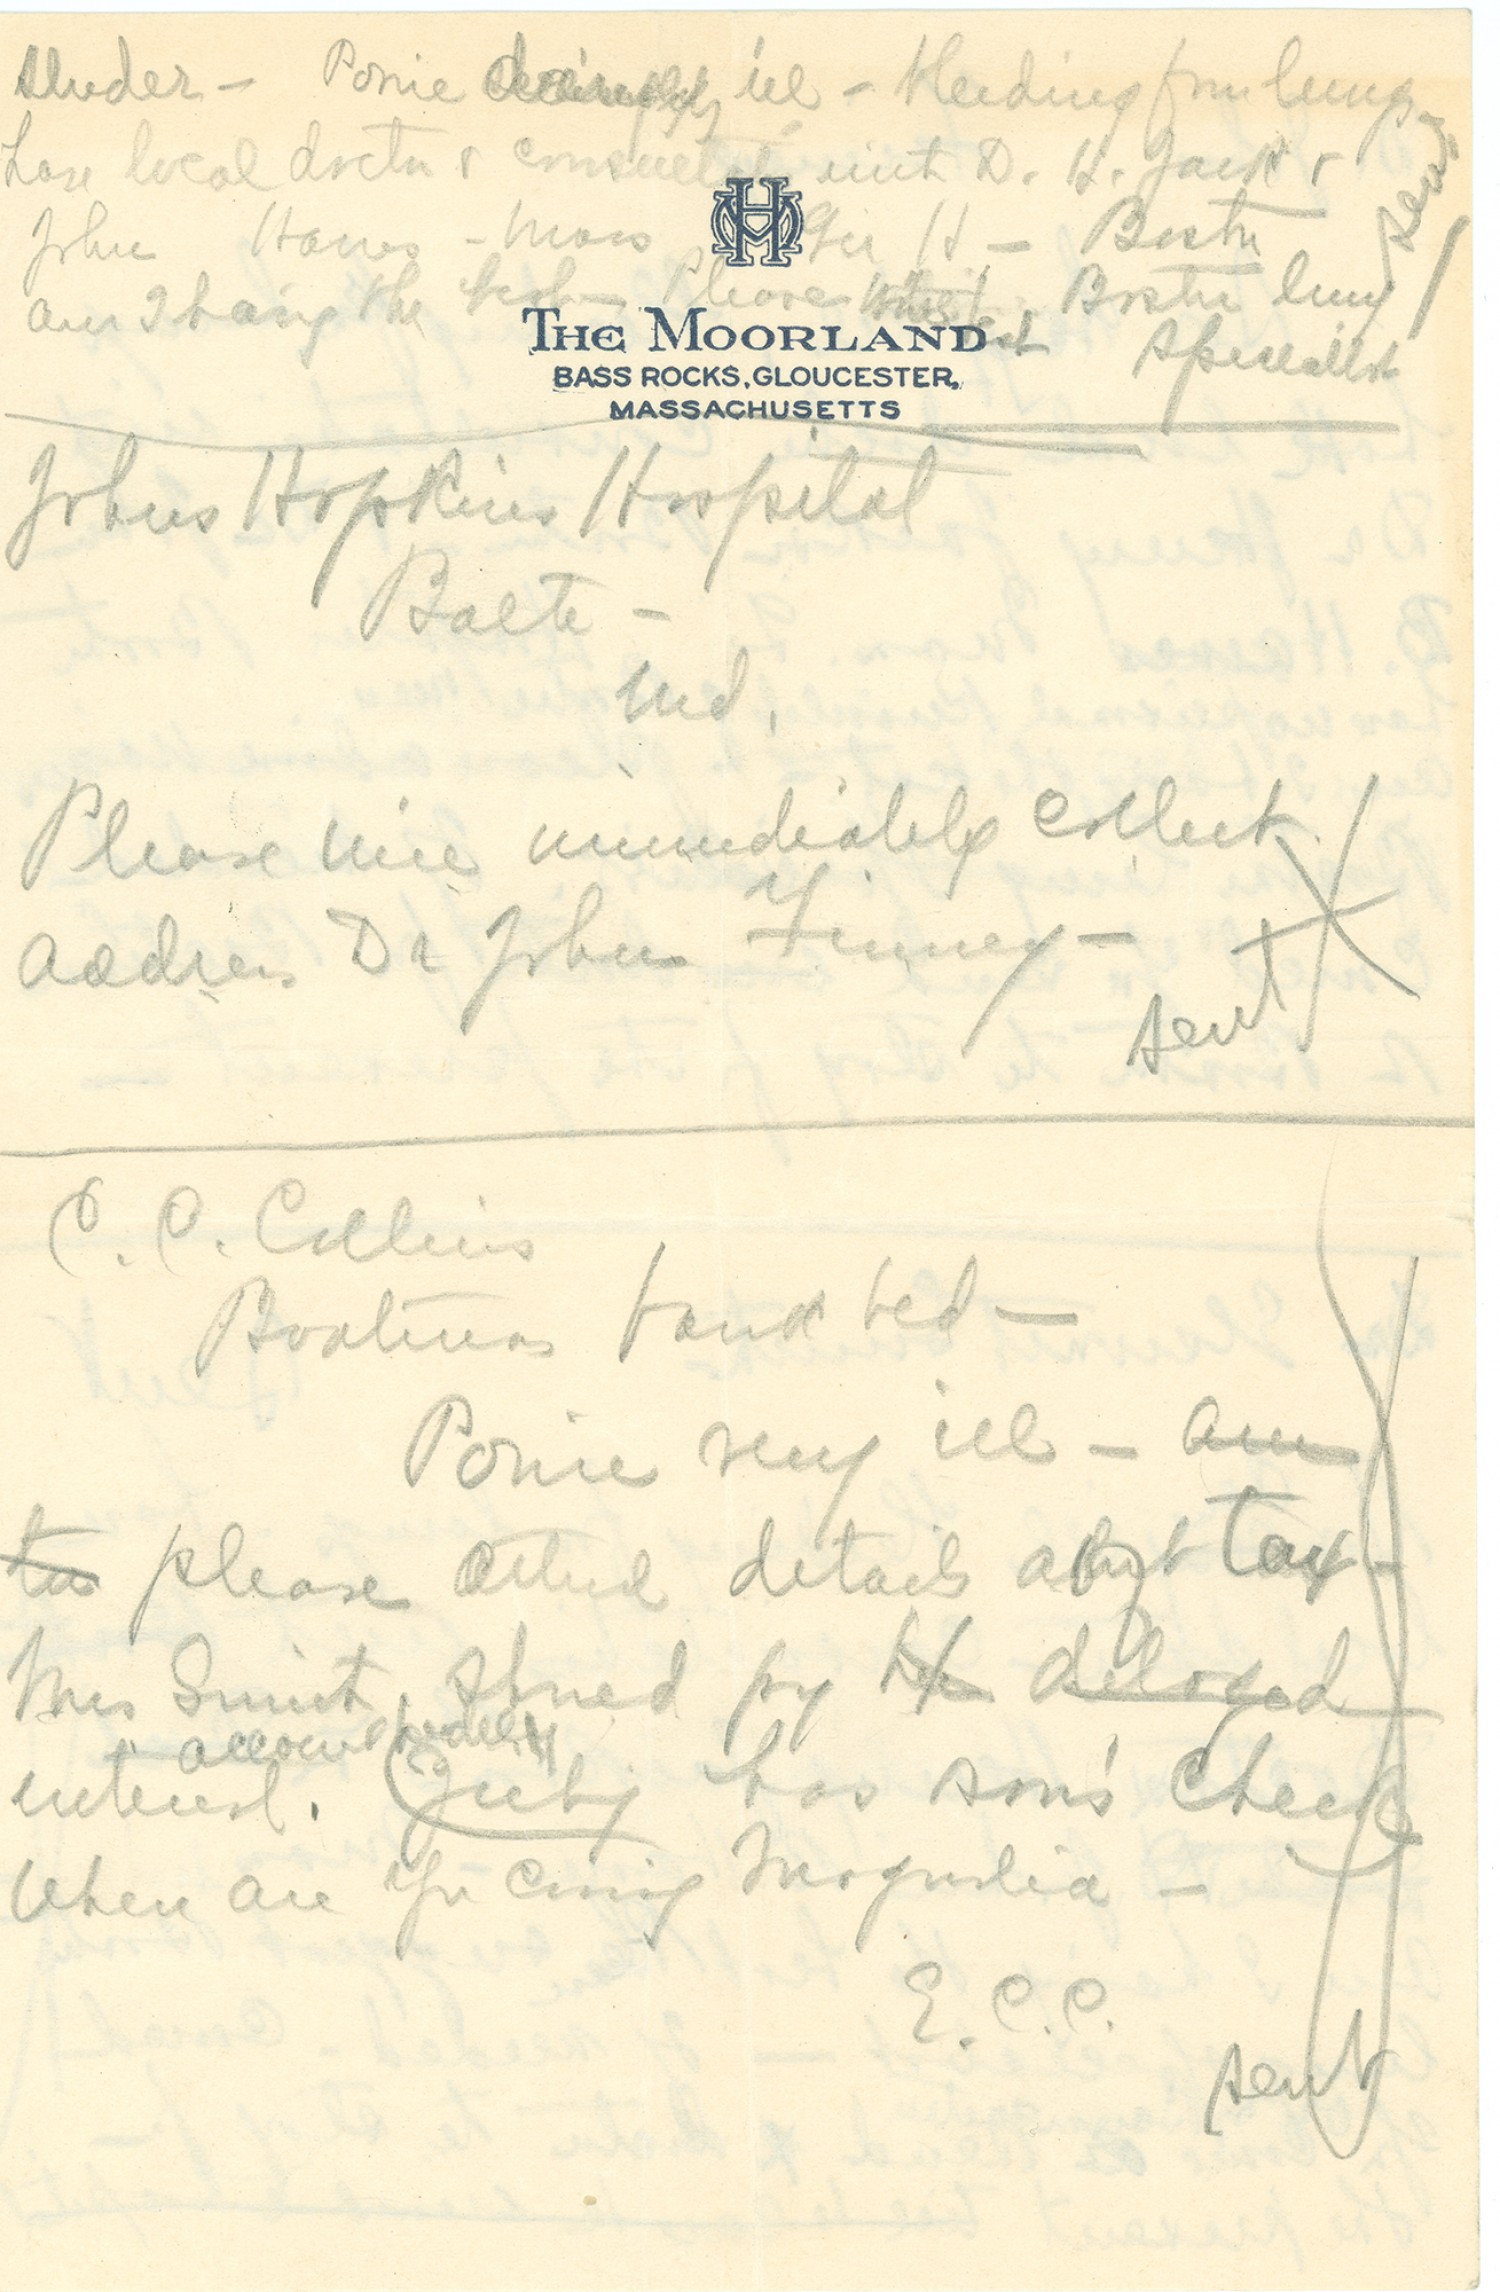 Sluder - Ponie ill - bleeding from lungs
have local doctor & consulted with D. H. Jack &
John Hawes - Mass Gen H - Boston
am I having the best Please Boston lung
specialist
sent
THE MOORLAND
BASS ROCKS, GLOUCESTER,
MASSACHUSETTS
Johns Hopkins Hospital
Balto -
Md.
Please wire immediately collect
address Dr John Finney -
sent
C. C. Collins
Boatmens bank bld -
Ponie very ill - am
too please attend details abt tax -
Mrs Smith, stored by He delayed
account
interest. July has son's check
When are you coming Magnolia -
E. C. C.
sent